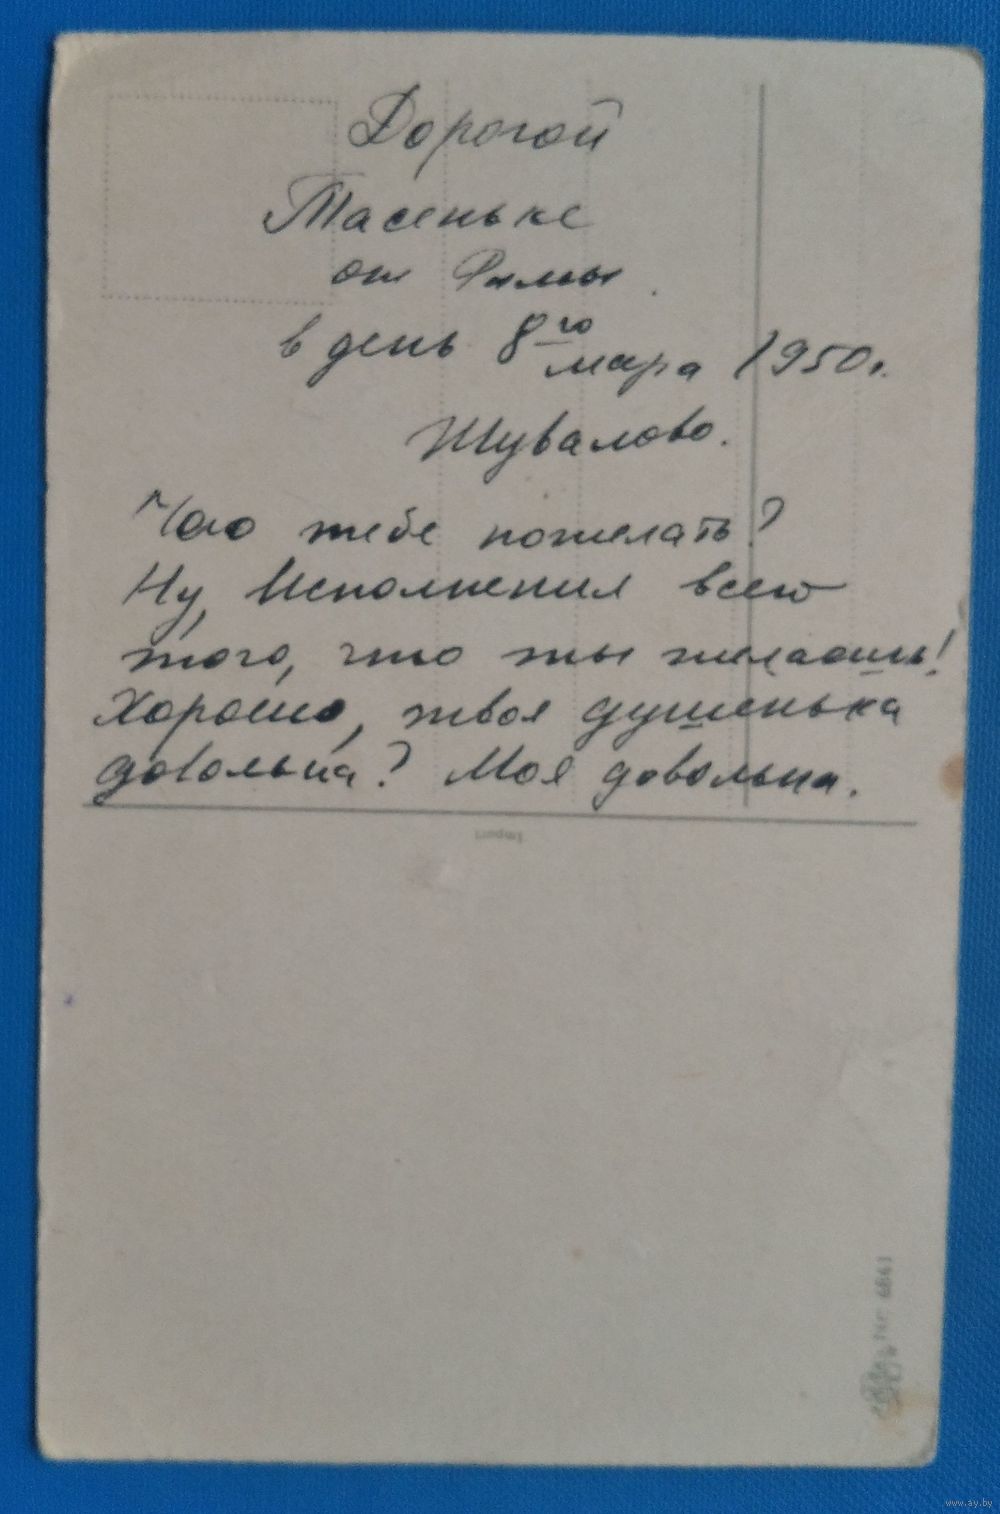 Дорогой
Тасеньке
от Римы
в день 8го
мара 1950г.
Шувалово.
Чего тебе пожелать?
Ну, Исполнения всего
того, что ты желаешь!
Хорошо, твоя душенька
довольна? Моя довольна.
Import
Nr. 6841
www.ay.by